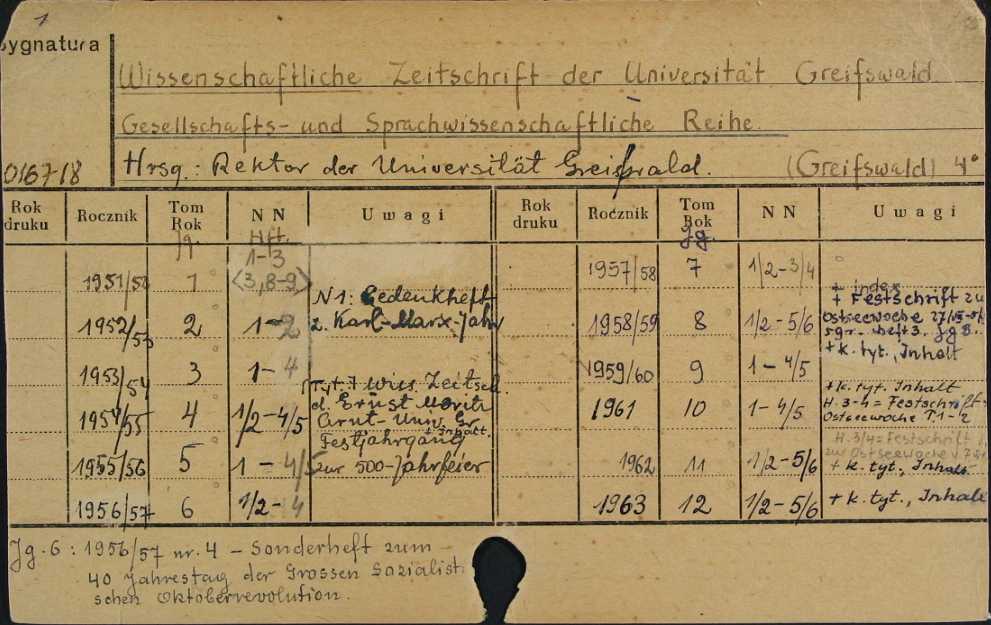 1
Sygnatura
Wissenschaftliche Zeitschrift der Universität Greifswald.
Gesellschafts- und Sprachwissenschaftliche Reihe.
016718 Hrsg.: Rektor der Universität Greifswald. (Greifswald) 4°
Rok druku Rocznik Tom Rok N N Uwagi Rok druku Rocznik Tom Rok N N Uwagi
Jg. Hft. Jg.
1951/52 1 1-3 <3, 8-9>
1952/53 2 1-2 N 1: Gedenkheft z. Karl-Marx-Jahr
1953/54 3 1-4
1954/55 4 1/2-4/5 Tyt. 7 Wiss. Zeitsch. d. Ernst Moritz Arnt-Univ. Gr. + Inhalt.
1955/56 5 1-4/5 Festjahrgang zur 500-Jahrfeier
1956/57 6 1/2-4
1957/58 7 1/2-3/4 + index
1958/59 8 1/2-5/6 + Festschrift zu Ostseewoche heft 3. Jg 8.
1959/60 9 1-4/5 + k. tyt., Inhalt
1961 10 1-4/5 + k. tyt. Inhalt H. 3-4 = Festschrift Ostseewoche T. 1-2
1962 11 1/2-5/6 H. 3/4 = Festschrift zur Ostseewoche + k. tyt., Inhalt
1963 12 1/2-5/6 + k. tyt., Inhalt
Jg. 6 : 1956/57 nr. 4 - Sonderheft zum
40 Jahrestag der Grossen Sozialisti
schen Oktoberrevolution.